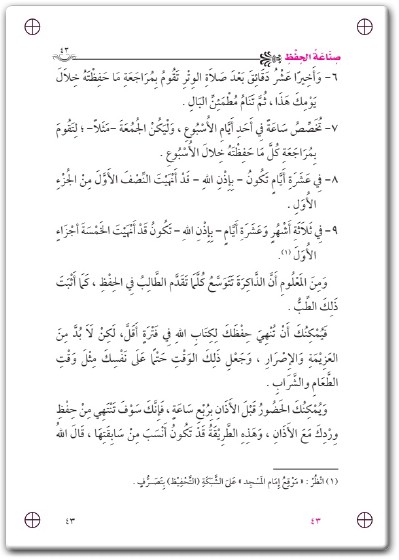 صِنَاعَةُ الحِفْظِ ٤٣
٦- وَأَخِيرًا عَشْرُ دَقَائِقَ بَعْدَ صَلَاةِ الوِتْرِ تَقُومُ بِمُرَاجَعَةِ مَا حَفِظْتَهُ خِلَالَ
يَوْمِكَ هَذَا ، ثُمَّ تَنَامُ مُطْمَئِنَّ البَالِ .
٧- تُخَصِّصُ سَاعَةً فِي أَحَدِ أَيَّامِ الأُسْبُوعِ ، وَلْيَكُنْ الجُمُعَةَ -مَثَلاً- ؛ لِتَقُومَ
بِمُرَاجَعَةِ كُلِّ مَا حَفِظْتَهُ خِلَالَ الأُسْبُوعِ .
٨- فِي عَشَرَةِ أَيَّامٍ تَكُونُ - بِإِذْنِ اللهِ - قَدْ أَنْهَيْتَ النِّصْفَ الأَوَّلَ مِنْ الجُزْءِ
الأَوَلِ .
٩- فِي ثَلَاثَةِ أَشْهُرٍ وَعَشَرَةِ أَيَّامٍ - بِإِذْنِ اللهِ - تَكُونُ قَدْ أَنْهَيْتَ الخَمْسَةَ أَجْزَاءَ
الأُولَ (١).
وَمِنَ المَعْلُومِ أَنَّ الذَّاكِرَةَ تَتَوَسَّعُ كُلَّمَا تَقَدَّم الطَّالِبُ فِي الحِفْظِ ، كَمَا أَثْبَتَ
ذَلِكَ الطِّبُّ .
فَيُمْكِنُكَ أَنْ تُنْهِيَ حِفْظَكَ لِكِتَابِ اللهِ فِي فَتْرَةٍ أَقَلَّ، لَكِنْ لَا بُدَّ مِنَ
العَزِيمَةِ وَالإِصْرَارِ ، وَجَعْلِ ذَلِكَ الوَقْتِ حَتْمًا عَلَى نَفْسِكَ مِثْلَ وَقْتِ
الطَّعَامِ وَالشَّرَابِ .
وَيُمْكِنُكَ الحُضُورُ قَبْلَ الأَذَانِ بِرُبْعِ سَاعَةٍ ، فَإِنَّكَ سَوْفَ تَنْتَهِي مِنْ حِفْظِ
وِرْدِكَ مَعَ الأَذَانِ ، وَهَذِهِ الطَّرِيقَةُ قَدْ تَكُونُ أَنْسَبَ مِنْ سَابِقَتِهَا ، قَالَ اللهُ
(١) انْظُرْ : « مَوْقِعُ إِمَامِ المَسْجِدِ » عَلَى الشَّبَكَةِ (التَّحْفِيظِ) بِتَصَرُّفٍ .
٤٣
٤٣